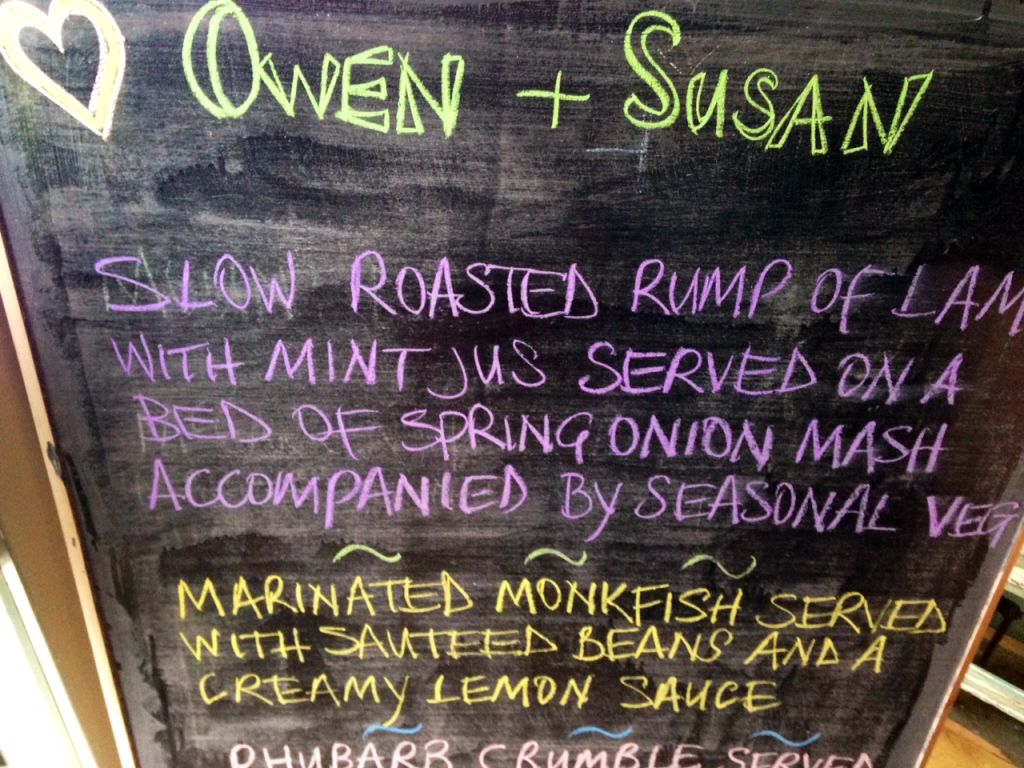 OWEN + SUSAN
SLOW ROASTED RUMP OF LAM
WITH MINT JUS SERVED ON A
BED OF SPRING ONION MASH
ACCOMPANIED BY SEASONAL VEG
MARINATED MONKFISH SERVED
WITH SAUTEED BEANS AND A
CREAMY LEMON SAUCE
RHUBARB CRUMBLE SERVED